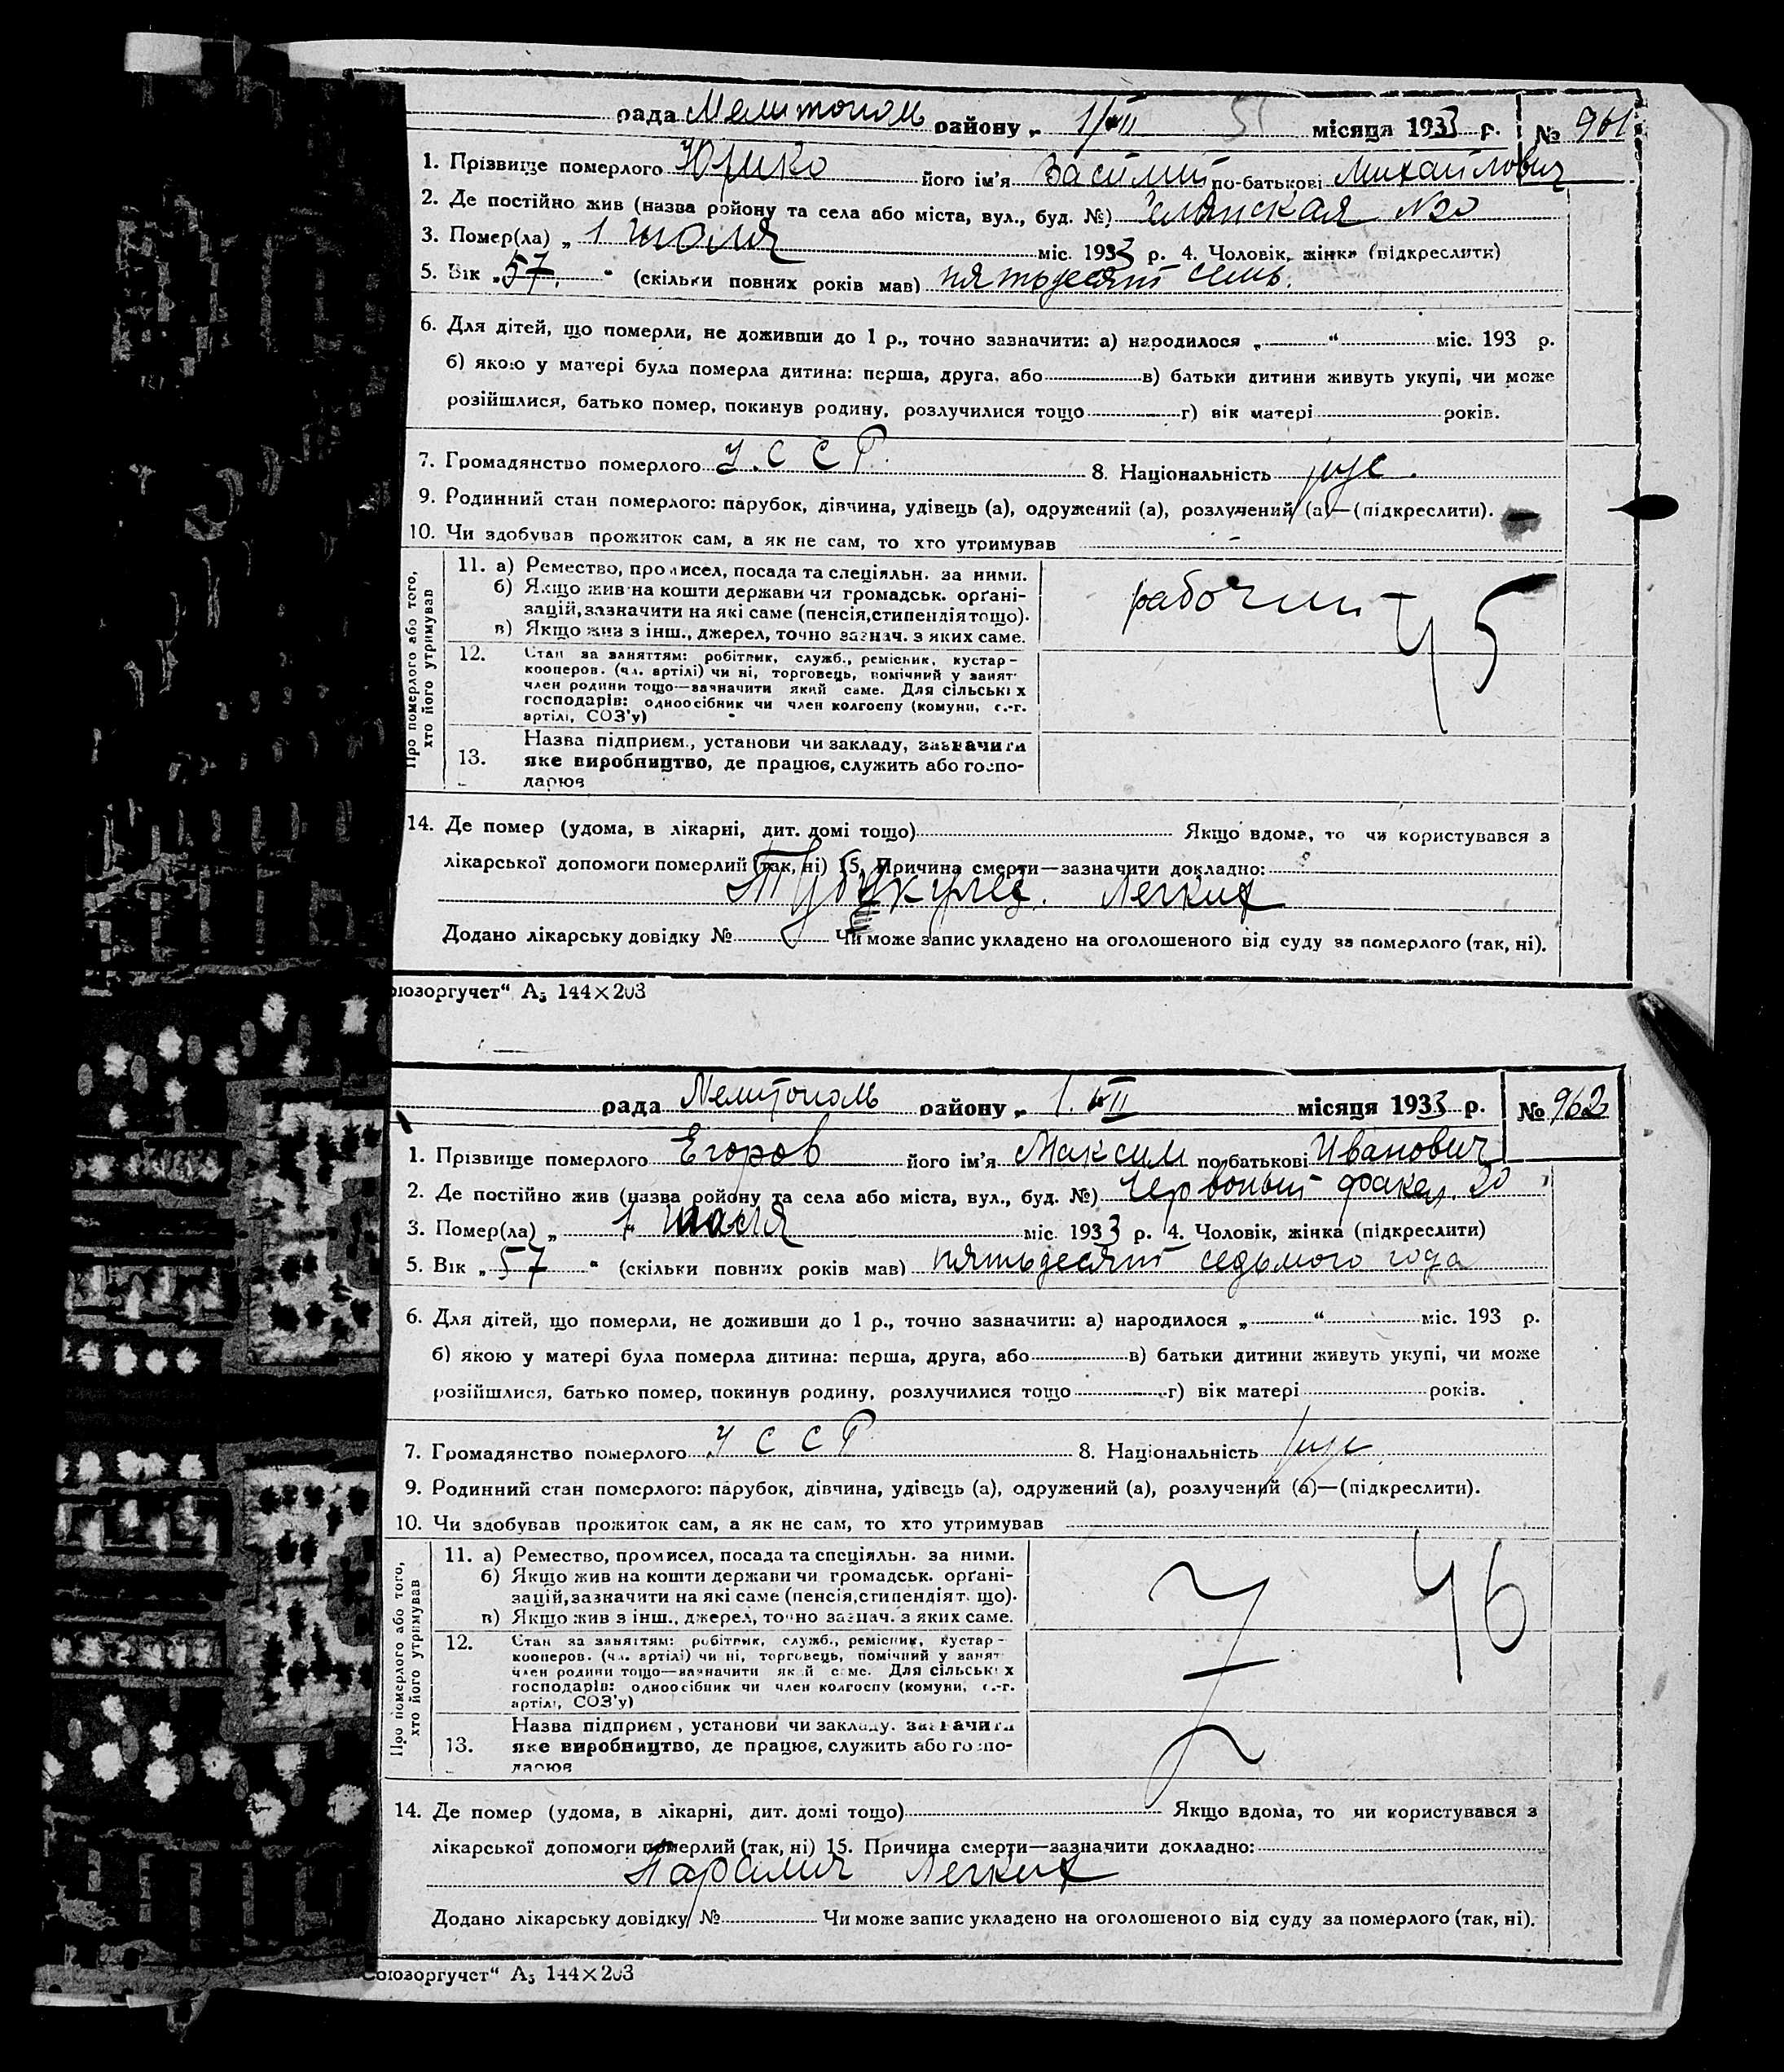 рада Мелитополь району „ 1/VII місяця 1933 р. № 961
1. Прізвище померлого Юрико його ім'я Василий по-батькові Михайлович
2. Де постійно жив (назва ройону та села або міста, вул., буд. №) №30
3. Помер(ла) „ 1 июля міс. 1933 р. 4. Чоловік, жінка (підкреслити)
5. Вік „ 57 “ (скільки повних років мав) пятьдесят семь.
6. Для дітей, що померли, не доживши до 1 р., точно зазначити: а) народилося „ “ міс. 193 р.
б) якою у матері була померла дитина: перша, друга, або в) батьки дитини живуть укупі, чи може
розійшлися, батько помер, покинув родину, розлучилися тощо г) вік матері років.
7. Громадянство померлого У.С С Р. 8. Національність рус.
9. Родинний стан померлого: парубок, дівчина, удівець (а), одружений (а), розлучений (а)—(підкреслити).
10. Чи здобував прожиток сам, а як не сам, то хто утримував
Про померлого або того,
хто його утримував
11. а) Ремество, промисел, посада та спеціяльн. за ними.
б) Якщо жив на кошти держави чи громадськ. орґані-
зацій, зазначити на які саме (пенсія, стипендія тощо).
в) Якщо жив з інш., джерел, точно зазнач. з яких саме.
рабочий 45
12. Стан за заняттям: робітник, служб., ремісник, кустар-
кооперов. (чл. артілі) чи ні, торговець, помічний у занят
член родини тощо—зазначити який саме. Для сільських
господарів: одноосібник чи член колгоспу (комуни, с.-г.
артілі, СОЗ'у)
13. Назва підприєм., установи чи закладу, зазначити
яке виробництво, де працює, служить або госпо-
дарює
14. Де помер (удома, в лікарні, дит. домі тощо) Якщо вдома, то чи користувався з
лікарської допомоги померлий (так, ні) 15. Причина смерти—зазначити докладно:
Туберкулез. Легких
Додано лікарську довідку № Чи може запис укладено на оголошеного від суду за померлого (так, ні).
оюзоргучет“ А5 144×203
рада Мелитополь району „ 1. VII місяця 1933 р. № 962
1. Прізвище померлого Егоров його ім'я Максим по-батькові Иванович
2. Де постійно жив (назва ройону та села або міста, вул., буд. №) Червоный факел. 20
3. Помер(ла) „ 1 июля міс. 1933 р. 4. Чоловік, жінка (підкреслити)
5. Вік „ 57 “ (скільки повних років мав) пятьдесят седьмого года
6. Для дітей, що померли, не доживши до 1 р., точно зазначити: а) народилося „ “ міс. 193 р.
б) якою у матері була померла дитина: перша, друга, або в) батьки дитини живуть укупі, чи може
розійшлися, батько помер, покинув родину, розлучилися тощо г) вік матері років.
7. Громадянство померлого У С С Р 8. Національність рус
9. Родинний стан померлого: парубок, дівчина, удівець (а), одружений (а), розлучений (а)—(підкреслити).
10. Чи здобував прожиток сам, а як не сам, то хто утримував
Про померлого або того,
хто його утримував
11. а) Ремество, промисел, посада та спеціяльн. за ними.
б) Якщо жив на кошти держави чи громадськ. орґані-
зацій, зазначити на які саме (пенсія, стипендія т. що).
в) Якщо жив з інш., джерел, точно зазнач. з яких саме.
46
12. Стан за заняттям: робітник, служб., ремісник, кустар-
кооперов. (чл. артілі) чи ні, торговець, помічний у занят
член родини тощо—зазначити який саме. Для сільських
господарів: одноосібник чи член колгоспу (комуни, с.-г.
артілі, СОЗ'у)
13. Назва підприєм., установи чи закладу. зазначити
яке виробництво, де працює, служить або госпо-
дарює
14. Де помер (удома, в лікарні, дит. домі тощо) Якщо вдома, то чи користувався з
лікарської допомоги померлий (так, ні) 15. Причина смерти—зазначити докладно:
Паралич Легких
Додано лікарську довідку № Чи може запис укладено на оголошеного від суду за померлого (так, ні).
Союзоргучет“ А5 144×203